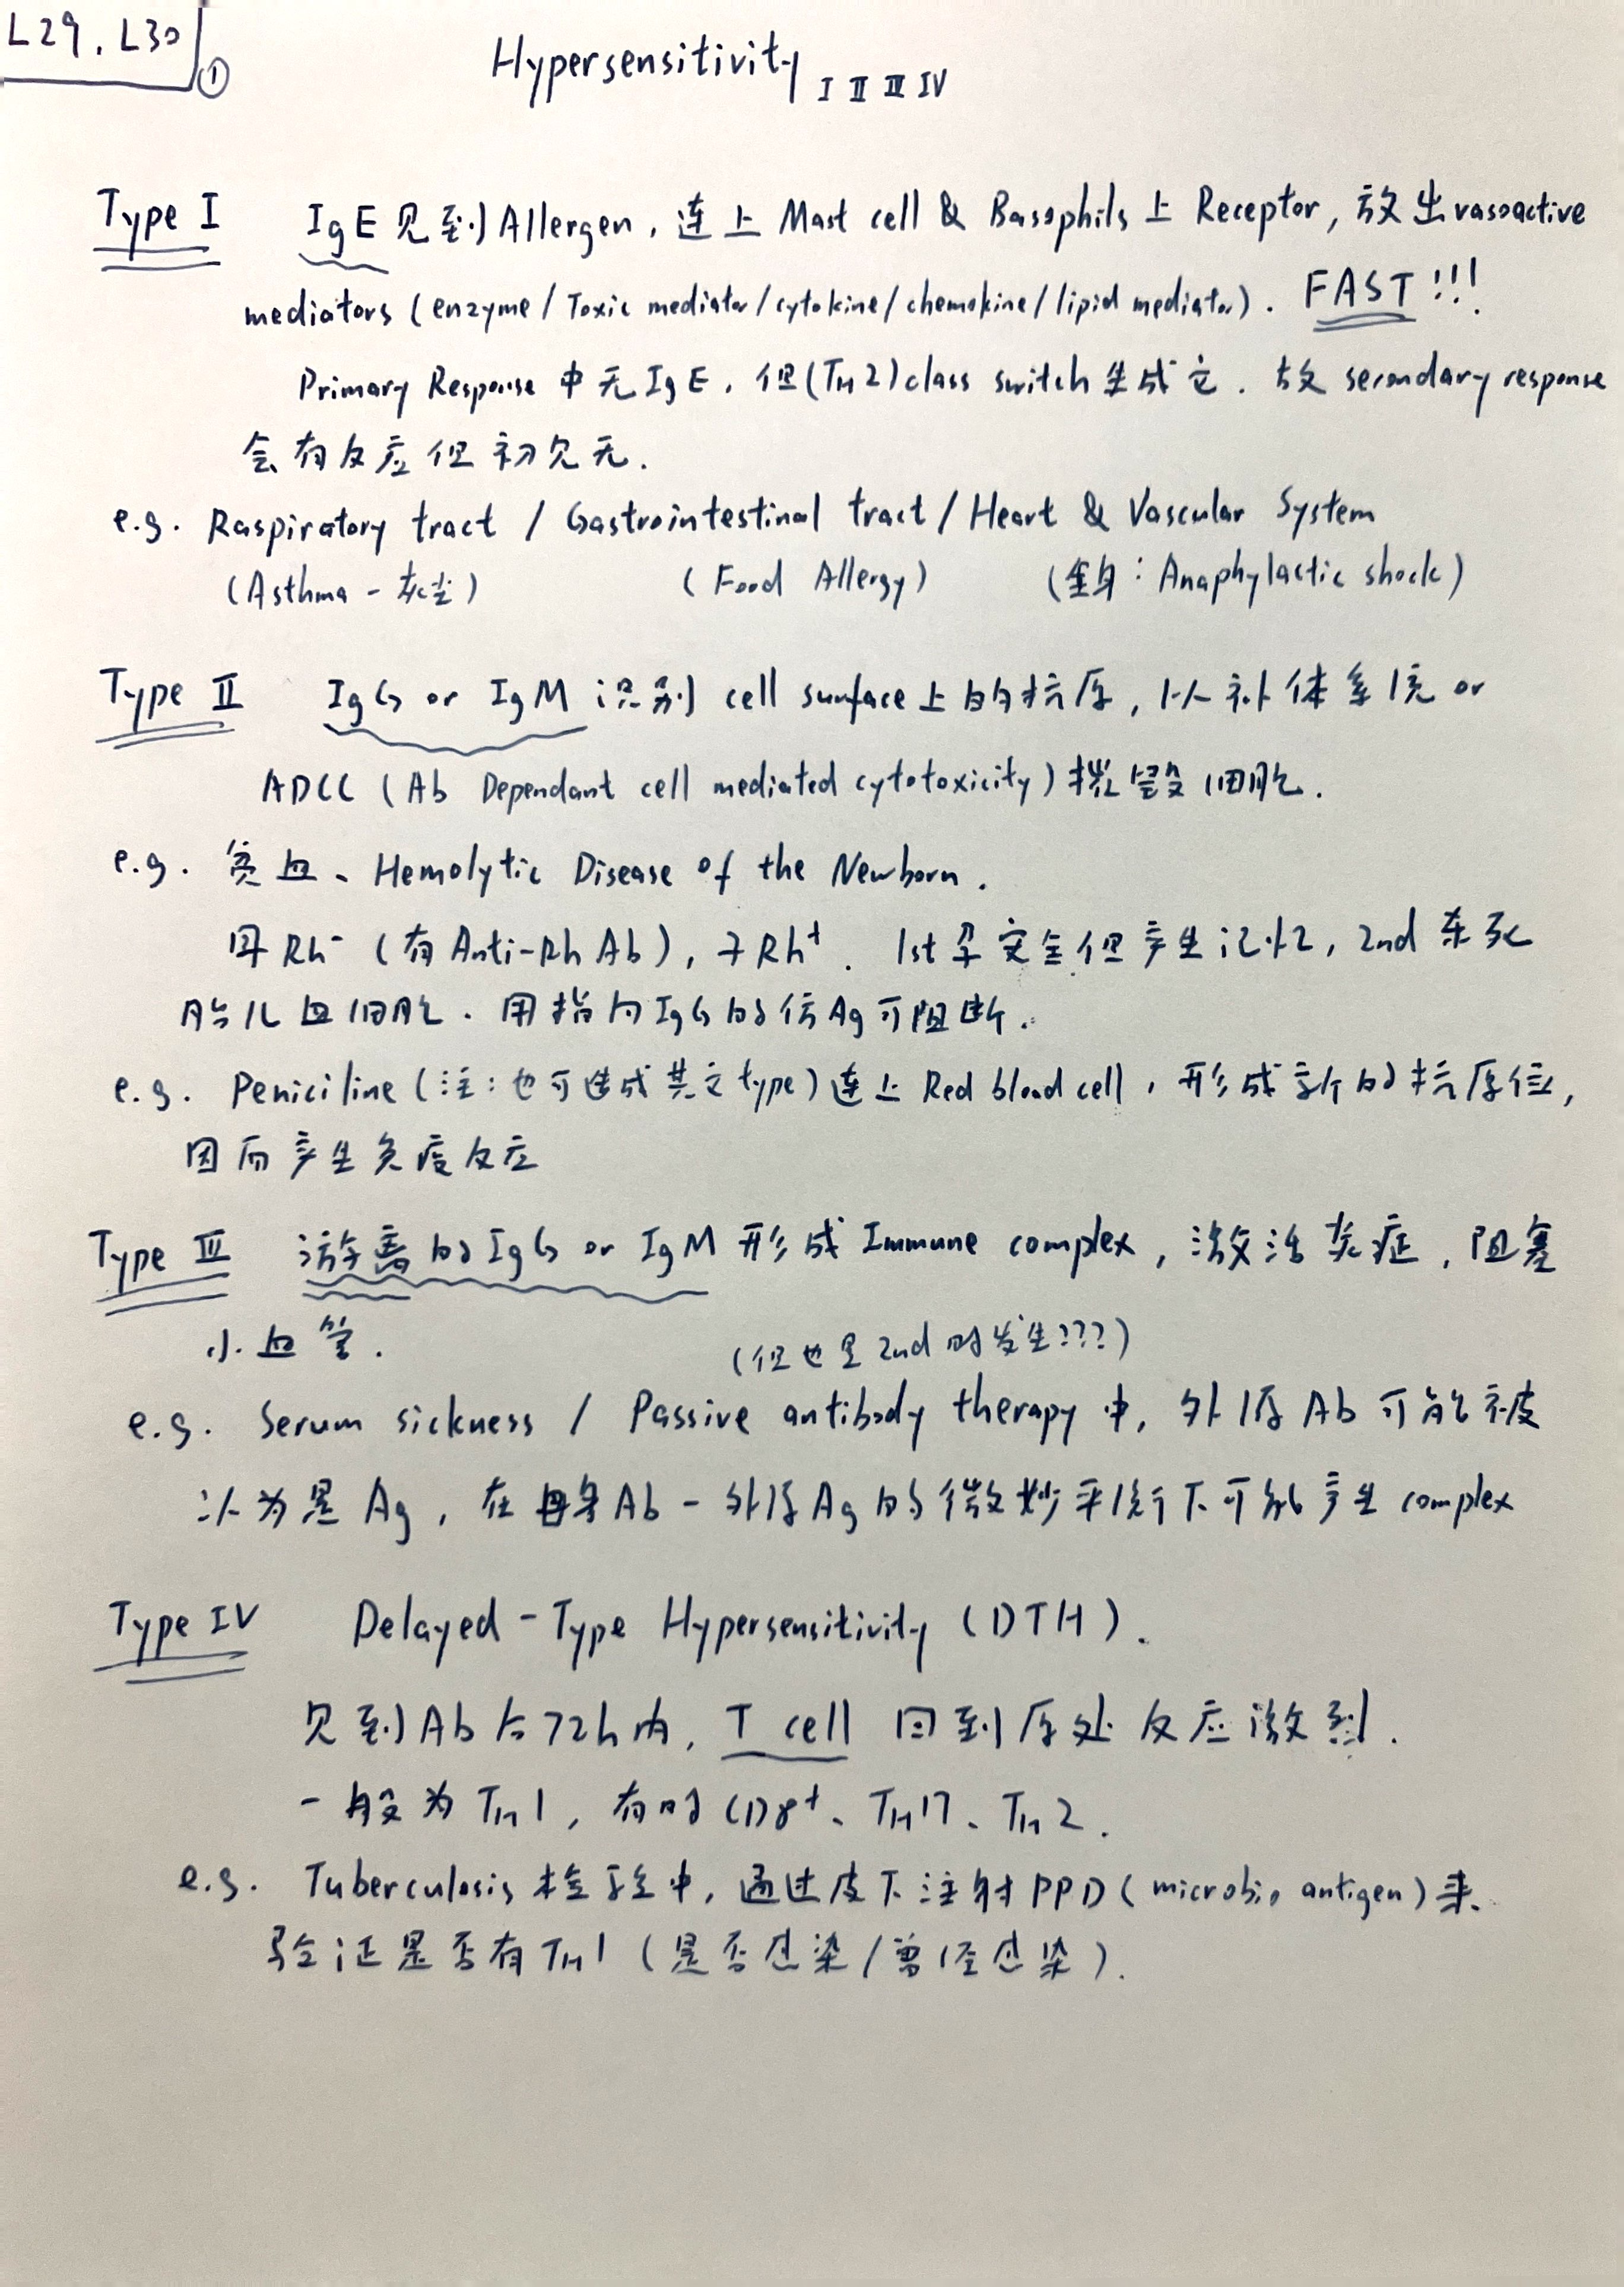 L29, L30 ①
Hypersensitivity I II III IV
Type I IgE 见到 Allergen, 连上 Mast cell & Basophils 上 Receptor, 放出 vasoactive
mediators (enzyme / Toxic mediator / cytokine / chemokine / lipid mediator). FAST!!!
Primary Response 中无 IgE, 但 (TH2) class switch 生成它. 故 secondary response
会有反应但初见无.
e.g. Raspiratory tract / Gastrointestinal tract / Heart & Vascular System
(Asthma - 灰尘) (Food Allergy) (全身: Anaphylactic shock)
Type II IgG or IgM 识别 cell surface 上的抗原, 以补体系统 or
ADCC (Ab Dependant cell mediated cytotoxicity) 摧毁细胞.
e.g. 贫血、Hemolytic Disease of the Newborn.
母 Rh⁻ (有 Anti-Rh Ab), 子 Rh⁺. 1st 孕安全但产生记忆, 2nd 杀死
胎儿血细胞. 用指向 IgG 的仿 Ag 可阻断.
e.g. Peniciline (注: 也可造成其它 type) 连上 Red blood cell, 形成新的抗原位,
因而产生免疫反应
Type III 游离的 IgG or IgM 形成 Immune complex, 激活炎症, 阻塞
小血管. (但也是 2nd 时发生???)
e.g. Serum sickness / Passive antibody therapy 中, 外源 Ab 可能被
认为是 Ag, 在自身 Ab - 外源 Ag 的微妙平衡下可能产生 complex
Type IV Delayed-Type Hypersensitivity (DTH).
见到 Ab 后 72h 内, T cell 回到原处反应激烈.
一般为 TH1, 有时 CD8⁺、TH17、TH2.
e.g. Tuberculosis 检验中, 通过皮下注射 PPD (microbio antigen) 来
验证是否有 TH1 (是否感染 / 曾经感染).